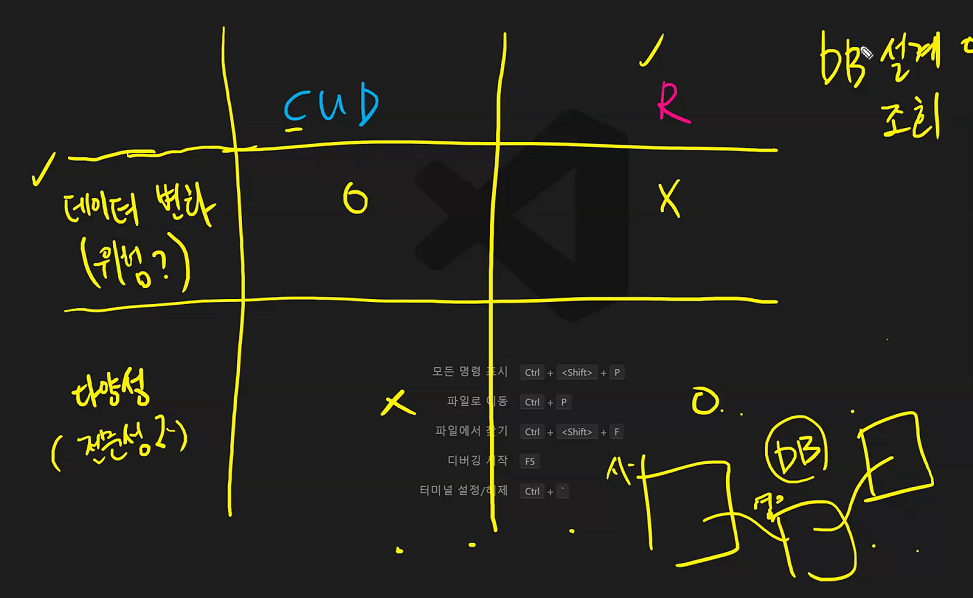 DB 설계
조회
CUD
R
데이터 변화
(위험?)
O
X
다양성
(전문성?)
X
O..
모든 명령 표시 Ctrl + <Shift> + P
파일로 이동 Ctrl + P
파일에서 찾기 Ctrl + <Shift> + F
디버깅 시작 F5
터미널 설정/해제 Ctrl + `
DB